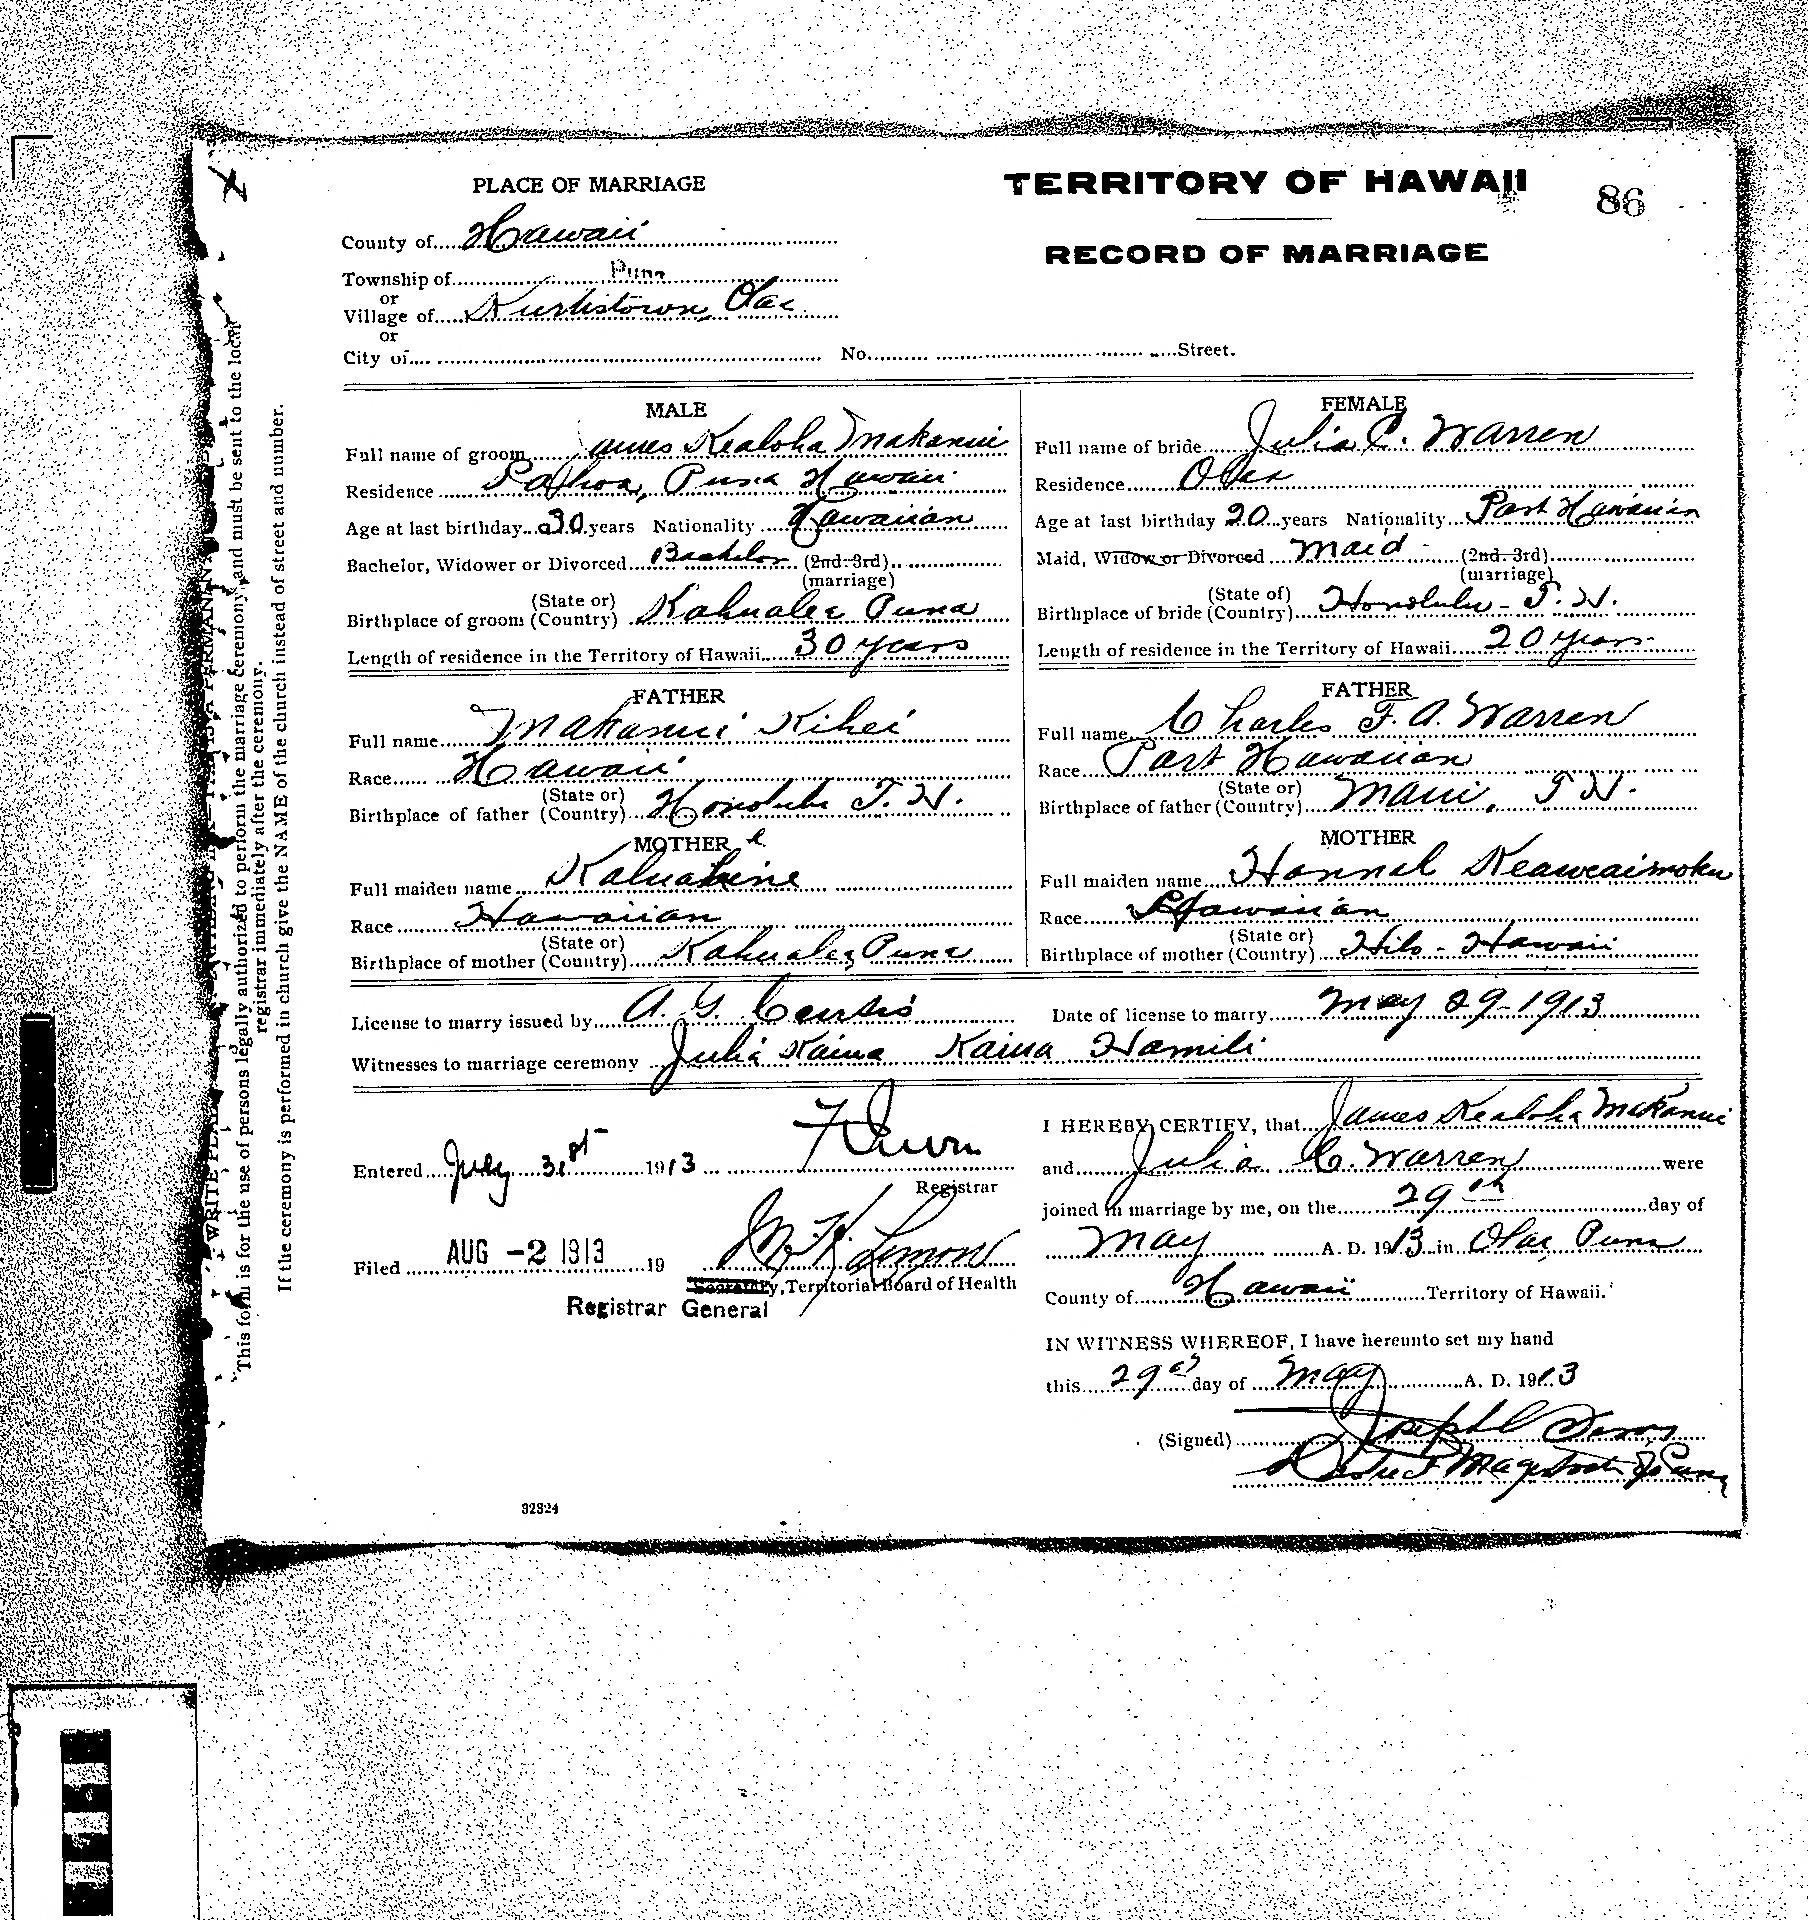 86
TERRITORY OF HAWAII
RECORD OF MARRIAGE
PLACE OF MARRIAGE
County of Hawaii
Township of Puna
or
Village of Kurtistown, Olaa
or
City of No. Street.
MALE
Full name of groom James Kealoha Makanui
Residence Pahoa, Puna Hawaii
Age at last birthday 30 years Nationality Hawaiian
Bachelor, Widower or Divorced Bachelor (2nd-3rd)
(marriage)
(State or)
Birthplace of groom (Country) Kahualea Puna
Length of residence in the Territory of Hawaii 30 years
FATHER
Full name Makanui Kihei
Race Hawaii
(State or)
Birthplace of father (Country) Honolulu T. H.
MOTHER
Full maiden name Kaluahine
Race Hawaiian
(State or)
Birthplace of mother (Country) Kahualea, Puna
FEMALE
Full name of bride Julia C. Warren
Residence Olaa
Age at last birthday 20 years Nationality Part Hawaiian
Maid, Widow or Divorced Maid (2nd-3rd)
(marriage)
(State of)
Birthplace of bride (Country) Honolulu - T. H.
Length of residence in the Territory of Hawaii 20 years
FATHER
Full name Charles F. A. Warren
Race Part Hawaiian
(State or)
Birthplace of father (Country) Maui, T H.
MOTHER
Full maiden name Hannah Keaweaimoku
Race Hawaiian
(State or)
Birthplace of mother (Country) Hilo - Hawaii
License to marry issued by A. G. Curtis Date of license to marry May 29-1913
Witnesses to marriage ceremony Julia Kaina Kaina Hamili
Entered July 31st 1913
Registrar
Filed AUG -2 1913 19 M K Lemon
Secretary, Territorial Board of Health
Registrar General
I HEREBY CERTIFY, that James Kealoha Makanui
and Julia C. Warren were
joined in marriage by me, on the 29th day of
May A. D. 1913 in Olaa Puna
County of Hawaii Territory of Hawaii.
IN WITNESS WHEREOF, I have hereunto set my hand
this 29th day of May A. D. 1913
(Signed) Joseph
District Magistrate of Puna
32324
This form is for the use of persons legally authorized to perform the marriage ceremony, and must be sent to the local
registrar immediately after the ceremony.
If the ceremony is performed in church give the NAME of the church instead of street and number.